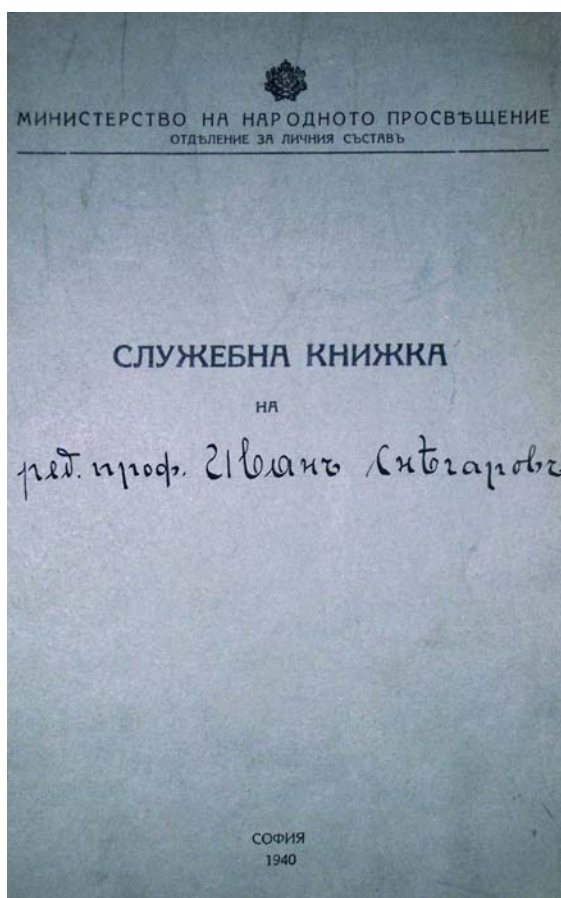 МИНИСТЕРСТВО НА НАРОДНОТО ПРОСВѢЩЕНИЕ
ОТДѢЛЕНИЕ ЗА ЛИЧНИЯ СЪСТАВЪ
СЛУЖЕБНА КНИЖКА
НА
ред. проф. Иванъ Снѣгаровъ
СОФИЯ
1940